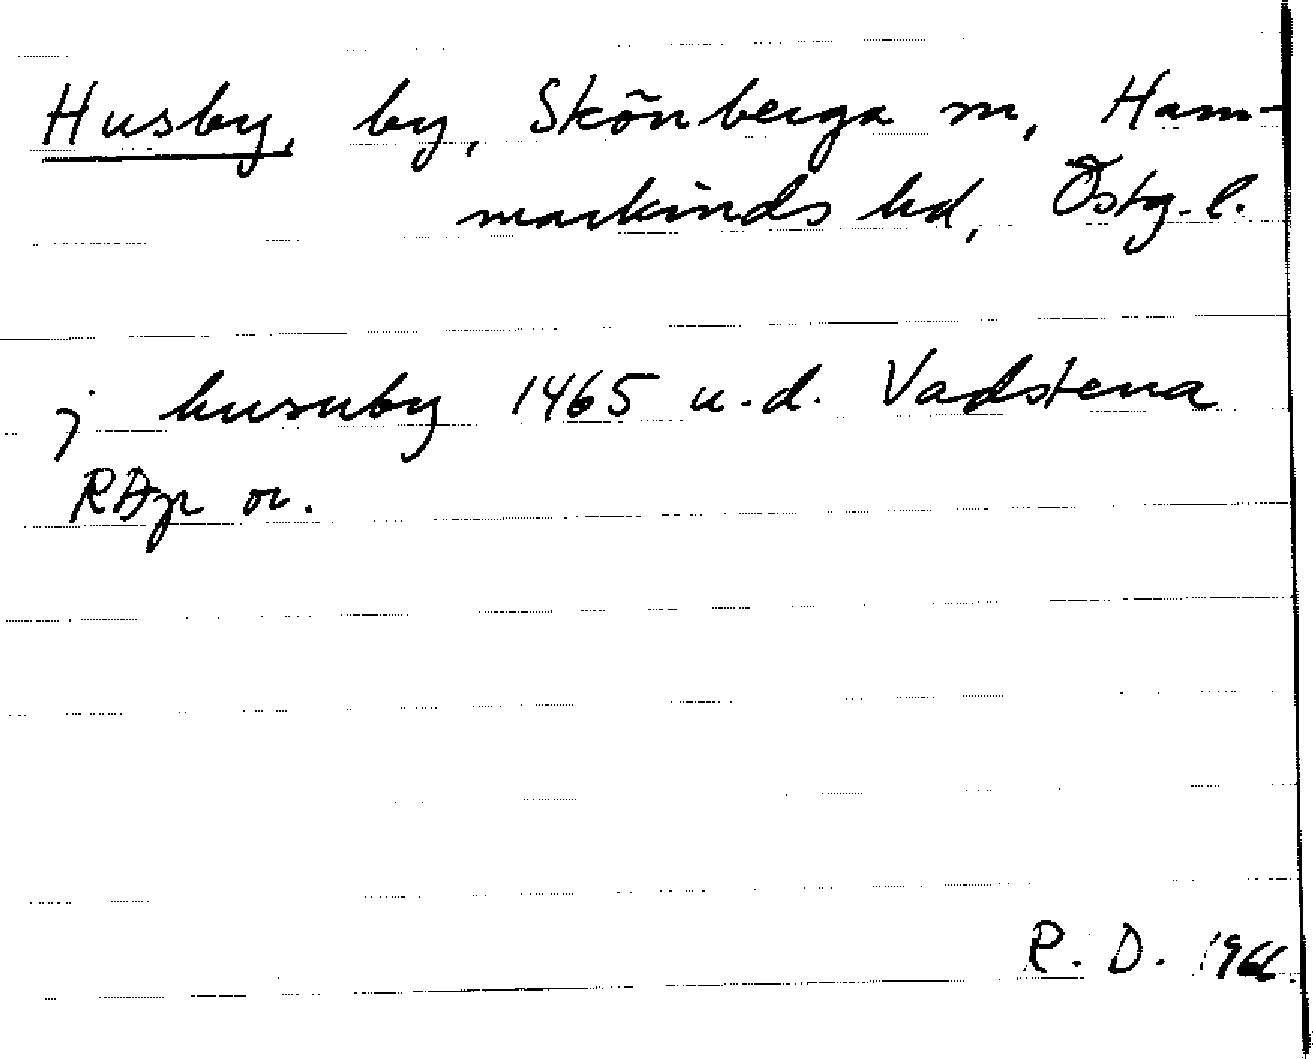 Husby, by, Skönberga sn, Ham-
markinds hd, Östg. l.
j husuby 1465 u.d. Vadstena
RAp or.
R. D. 1966.